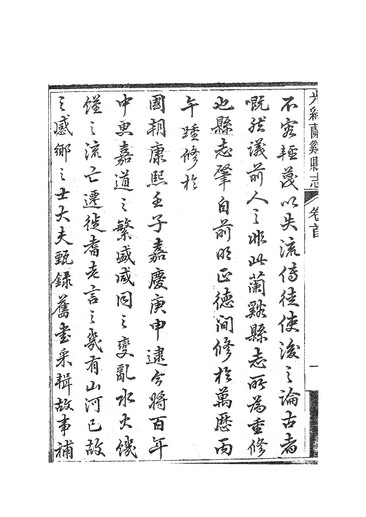 光緒蘭谿縣志
卷首
一
不容輕蔑以失流傳徒使後之論古者
慨然議前人之非此蘭谿縣志所為重修
也縣志肇自前明正德間修於萬歷丙
午踵修於
國朝康熙壬子嘉慶庚申逮今將百年
中更嘉道之繁盛咸同之變亂水火饑
饉之流亡遷徙耆老言之幾有山河已故
之感鄉之士大夫甄錄舊書采輯故事補